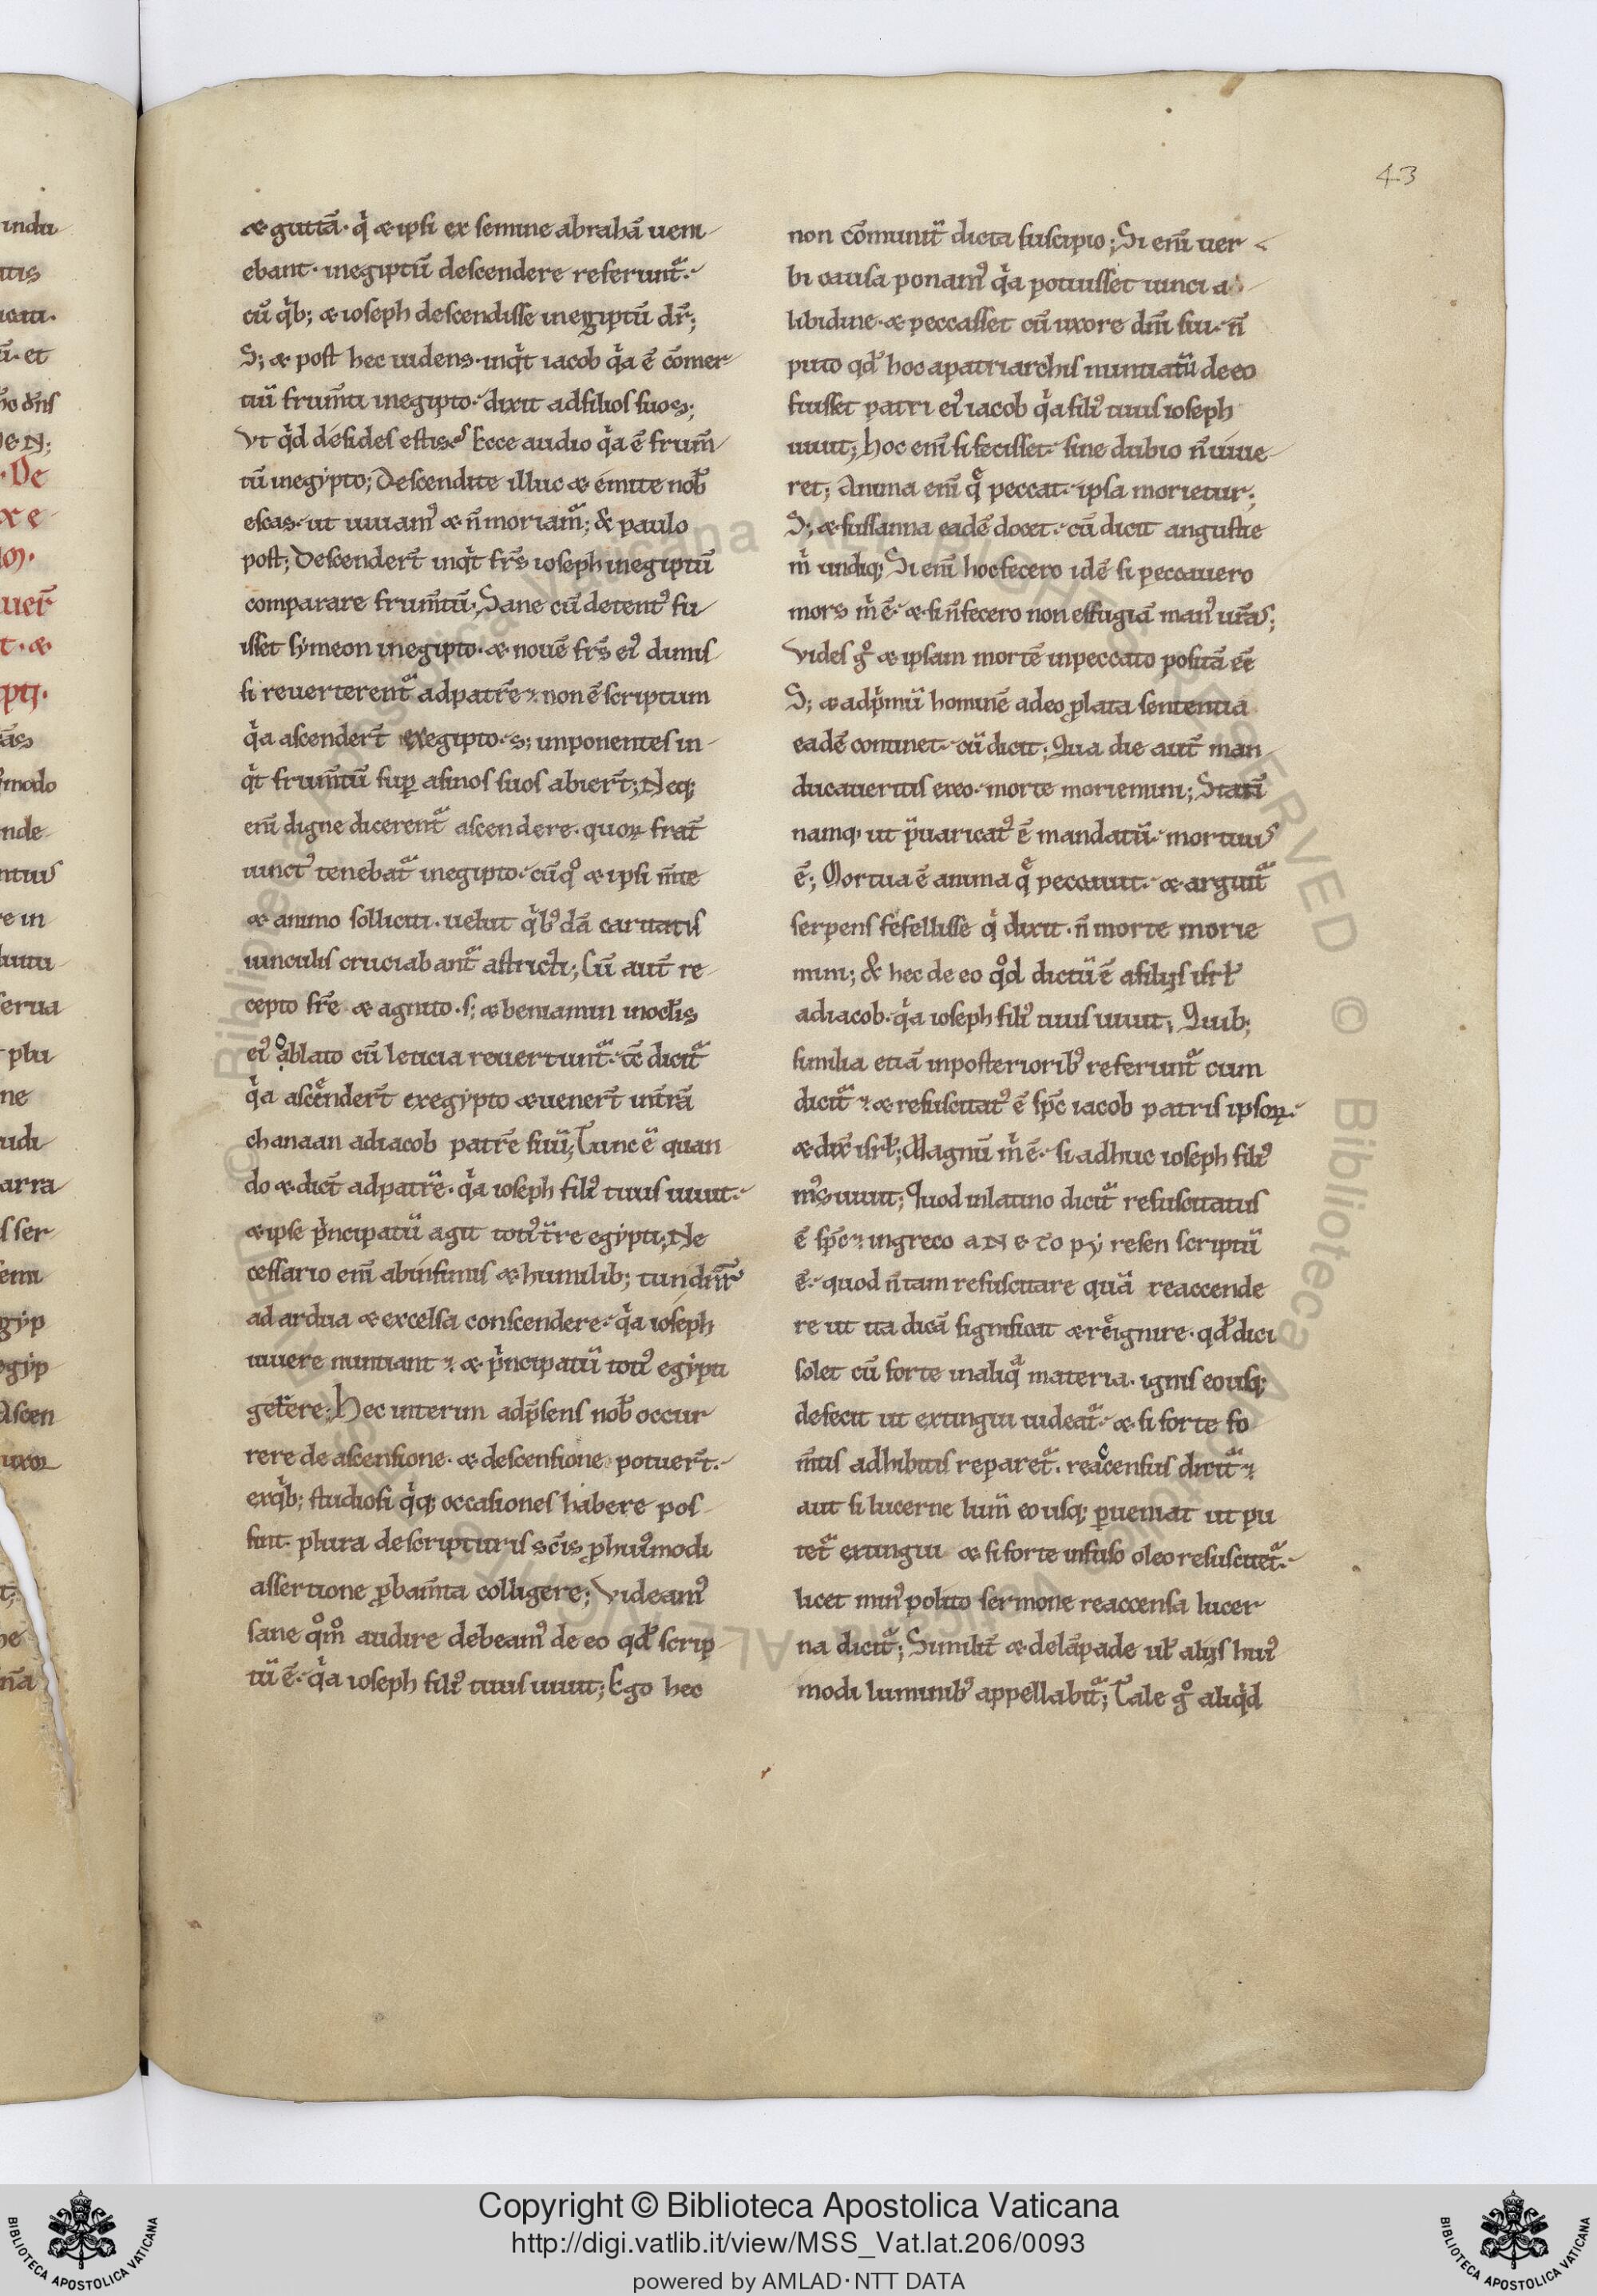 43
æ guttā· q̇ æ ipsi ex semine abrahā ueni
ebant· inegiptū descendere referunt᷑·
cū qͥb; æ ioseph descendisse inegiptū dr̄;
S; æ post hec uidens· inqͥt iacob qͥa ē cōmer
tiū frum̄ti inegipto· dixit adfilios suos;
Vt qͥd desides estis? Ecce audio qͥa ē frum̄
tū inegypto; Descendite illuc æ emite nob̄
escas· ut uiuamꝰ æ n̄ moriam᷑; & paulo
post; Descender̄t inqͥt fr̄s ioseph inegiptū
comparare frum̄tū; Sane cū detentꝰ fu
isset symeon inegipto· æ nouē fr̄s eiꝰ dimis
si reuerterent᷑ adpatrē· non ē scriptum
qͥa ascender̄t exegipto· s; imponentes in
qͥt frum̄tū suꝑ asinos suos abier̄t; Neq;
eni͞ digne dicerent᷑ ascendere· quoꝝ frat̄
uinctꝰ tenebat᷑ inegipto· cū qͦ æ ipsi m̄te
æ animo solliciti· uelut qͥbꝰdā caritatis
uinculis cruciabant᷑ astricti; Cū aut̄ re
cepto fr̄e æ agnito· s; æ beniamin inoc̄lis
eiꝰ oblato cū leticia reuertunt᷑· tc̄ dicit᷑
qͥa ascender̄t exegypto æ uener̄t int̄rā
chanaan adiacob patrē suū; Tunc ē quan
do æ dic̄t adpatrē· qͥa ioseph filiꝰ tuus uiuit·
æ ipse pͥncipatū agit totiꝰ t̄re egypti; Ne
cessario eni͞ abinfimis æ humilib; tundn̄t᷑
ad ardua æ excelsa conscendere· qͥa ioseph
uiuere nuntiant· æ pͥncipatū totiꝰ egypti
gerere; Hec interim adp̄sens nob̄ occur
rere de ascensione· æ descensione potuer̄t·
exqͥb; studiosi qͥq; occasiones habere pos
sint plura descripturis sc̄is ꝓhuiꝰmodi
assertione ꝓbam̄ta colligere; Videamꝰ
sane qͦm͂ audire debeamꝰ de eo qd̄ scrip
tū ē· qͥa ioseph filiꝰ tuus uiuit; Ego hec
non cōmunit̄ dicta suscipio; Si eni͞ uer
bi causa ponamꝰ qͥa potuisset uinci a
libidine· æ peccasset cū uxore dn̄i sui· n̄
puto qd̄ hoc apatriarchis nuntiatū de eo
fuisset patri eiꝰ iacob qͥa filiꝰ tuus ioseph
uiuit; Hoc eni͞ si fecisset· sine dubio n̄ uiue
ret; Anima eni͞ qͤ peccat· ipsa morietur;
S; æ sussanna eadē docet· cū dicit angustie
m̍ undiq; Si eni͞ hoc fecero idē si peccauero
mors m̍ ē· æ si n̄ fecero non effugiā manꝰ ur̄as;
Vides gͦ æ ipsam mortē inpeccato positā eē
S; æ adpͥmū hominē adeo ꝓlata sententia
eadē continet· cū dicit; Qua die aut̄ man
ducaueritis exeo· morte moriemini; Statī
namq; ut p̄uaricatꝰ ē mandatū· mortuus
ē; Mortua ē anima qͤ peccauit· æ arguit᷑
serpens fefellisse qͥ dixit· n̄ morte morie
mini; & hec de eo qͦd dictū ē afiliis isrl̄
adiacob· qͥa ioseph filiꝰ tuus uiuit; Quib;
similia etiā inposteriorib; referunt᷑ cum
dicit᷑· æ resuscitatꝰ ē sp̄c iacob patris ipsoꝝ·
æ dix̄ isrl̄; Magnū m̍ ē· si adhuc ioseph filiꝰ
mꝰs uiuit; Quod inlatino dicit᷑ resuscitatus
ē sp̄c· ingreco aneto py resen scriptū
ē· quod n̄ tam resuscitare quā reaccende
re ut ita dicā significat æ reignire· qd̄ dici
solet cū forte inaliqᷓ materia· ignis eousq;
defecit ut extingui uideat᷑· æ si forte fo
m̄tis adhibitis reparet᷑· reaccensus dicit᷑·
aut si lucerne lum̄ eousq; ꝑueniat ut pu
tet᷑ extingui æ si forte infuso oleo resuscitet᷑·
licet minꝰ polito sermone reaccensa lucer
na dicit᷑; Similit̄ æ delāpade ul̄ aliis huiꝰ
modi luminib; appellabit᷑; Tale gͦ aliqͥd
Copyright © Biblioteca Apostolica Vaticana
http://digi.vatlib.it/view/MSS_Vat.lat.206/0093
powered by AMLAD·NTT DATA